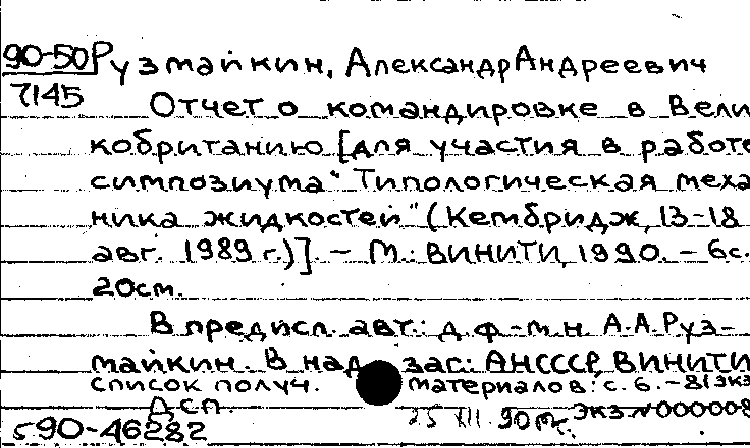 90-50 Рузмайкин, Александр Андреевич
7145
Отчет о командировке в Вели
кобританию [для участия в работе
симпозиума "Типологическая меха
ника жидкостей" (Кембридж, 13-18
авг. 1989 г.)]. - М.: ВИНИТИ, 1990. - 6с.
20см.
В предисл. авт.: д.ф.-м.н. А.А.Руз-
майкин. В над заг.: АНСССР, ВИНИТИ
список получ. материалов: с. 6. - 81экз
ДСП. 25 XII 90 Экз.№000008
590-46282